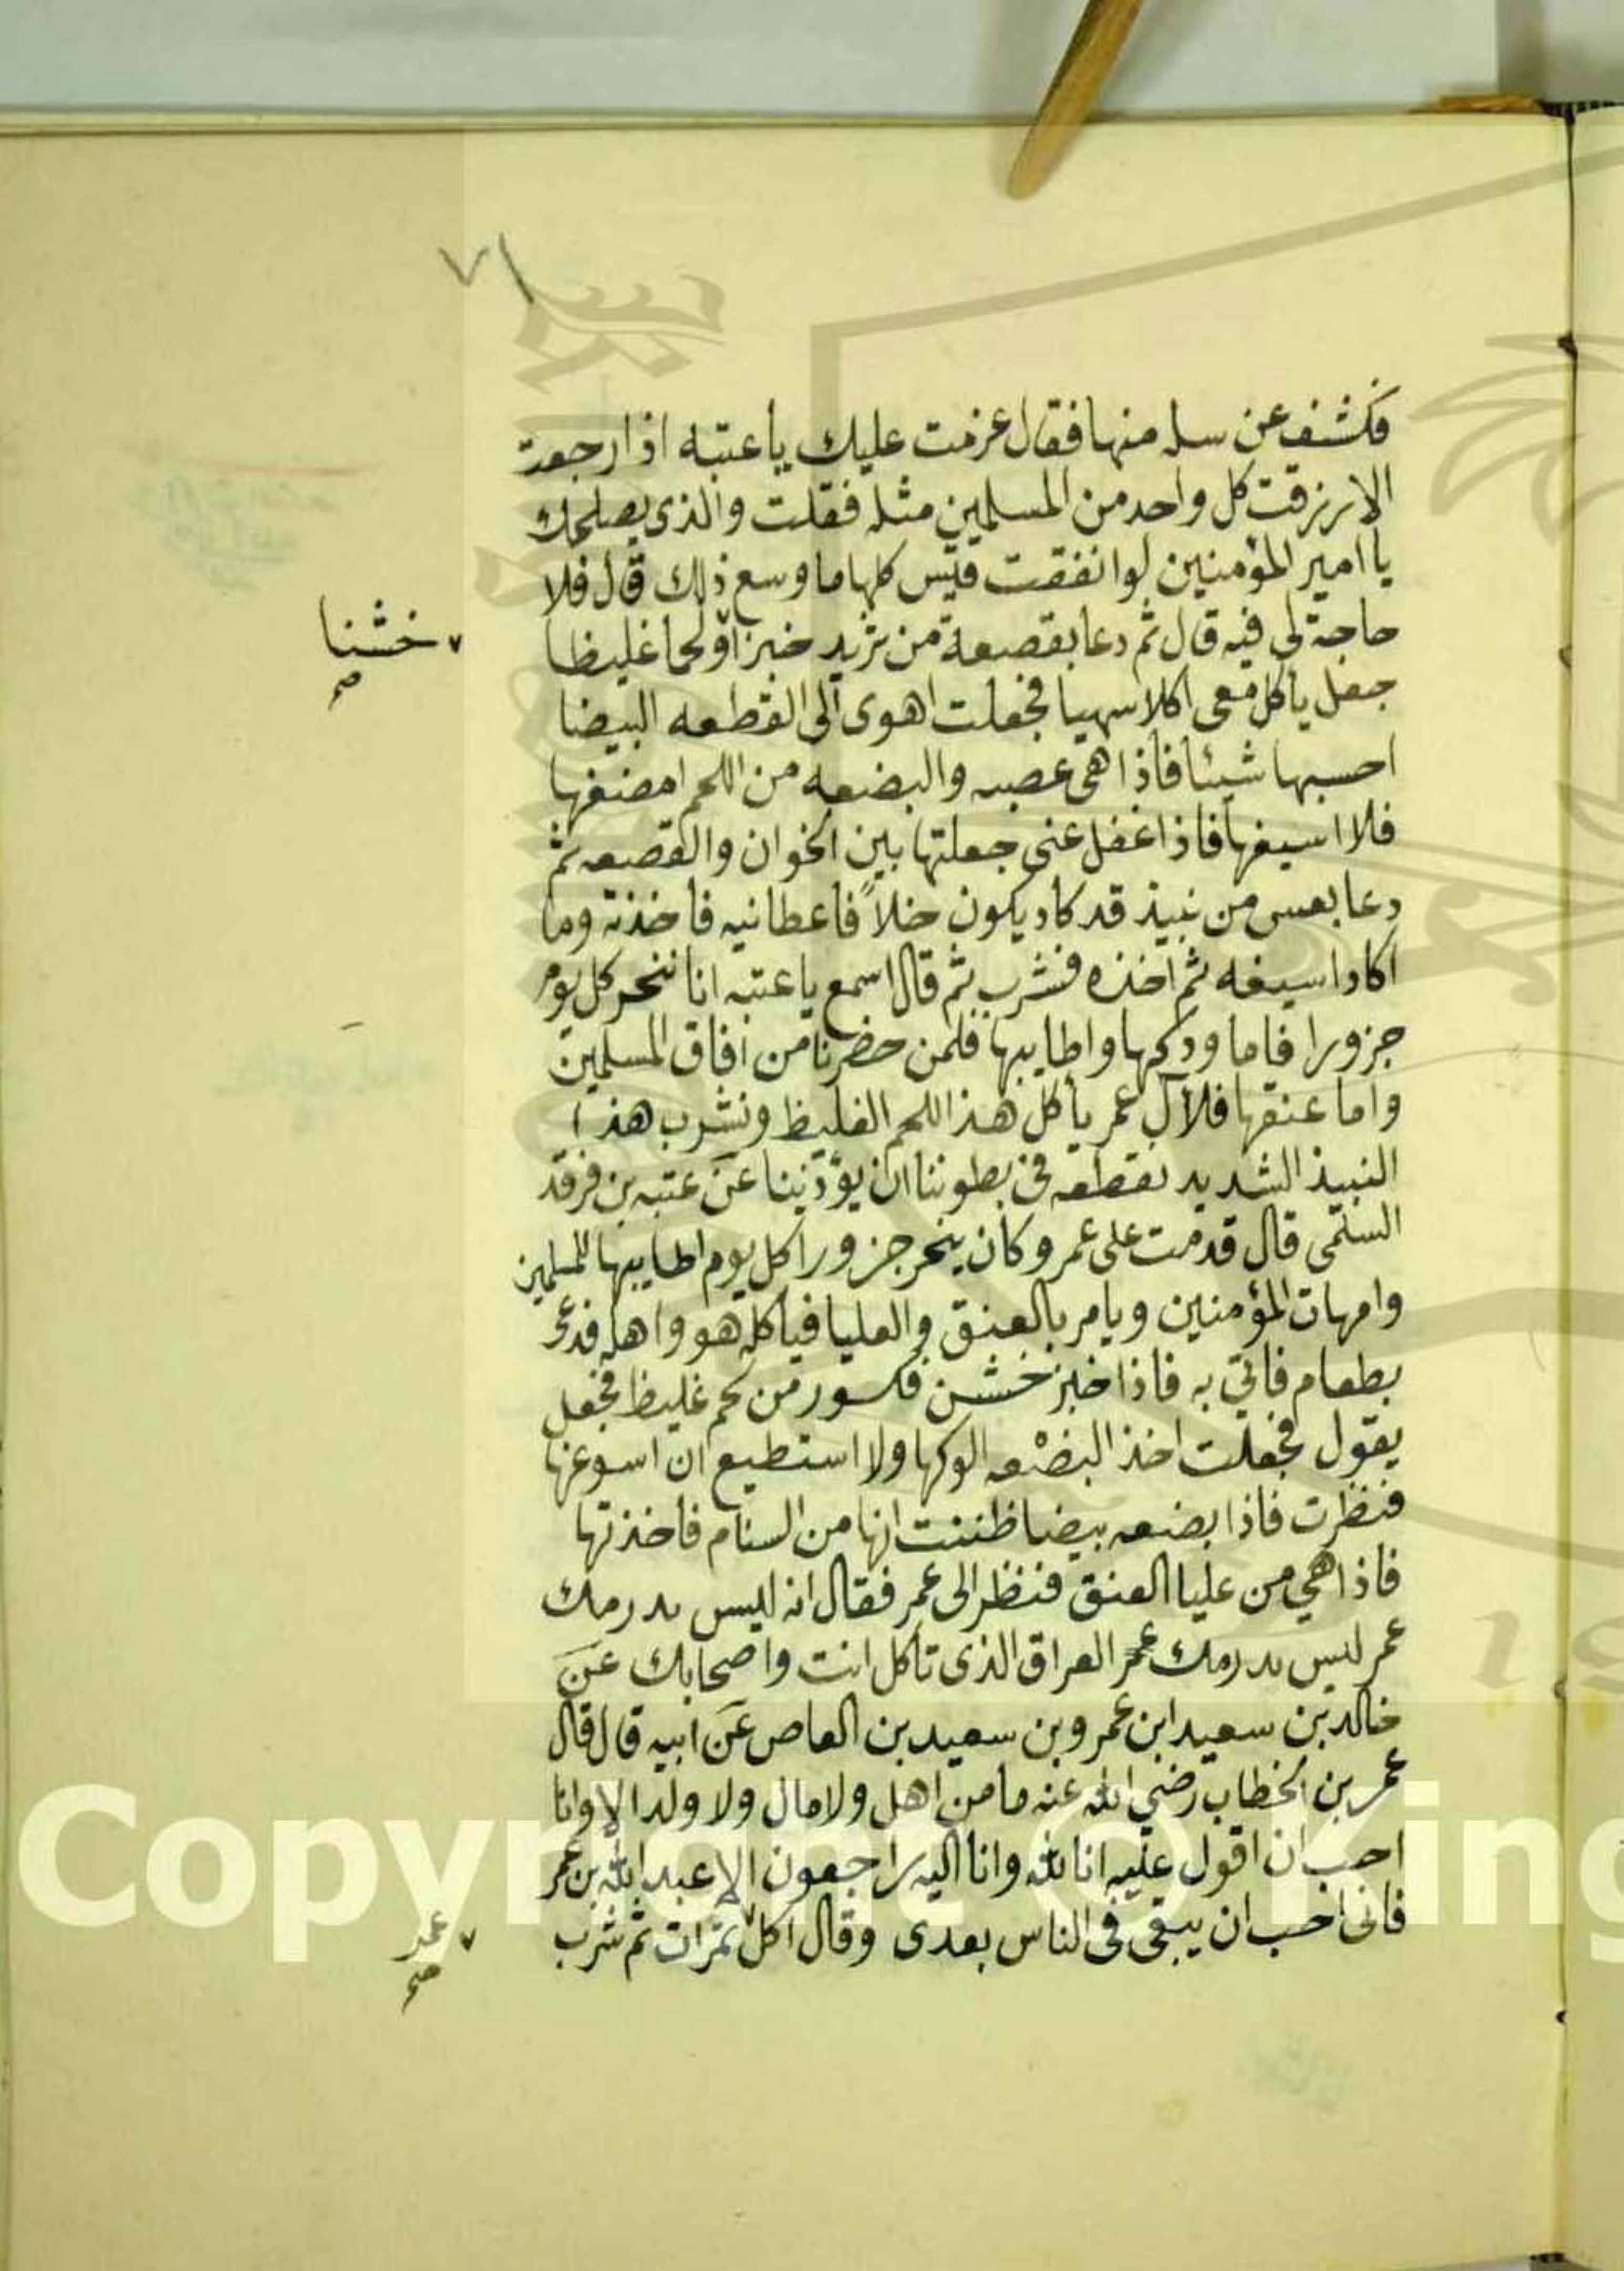 ٧١
فكشف عن سله منها فقال عزمت عليك يا عتبه اذا رجعت
الا رزقت كل واحد من المسلمين مثله فقلت والذى يصلحك
يا امير المؤمنين لو انفقت قيس كلها ما وسع ذلك قال فلا
حاجة لى فيه قال ثم دعا بقصعة من ثريد خبزا ولحما غليظا
خشنا
صح
جعل ياكل معى اكلا سهيا فجعلت اهوى الى القطعه البيضا
احسبها شيئا فاذا هى عصبه والبضعه من اللحم امضغها
فلا اسيغها فاذا غفل عنى جعلتها بين الخوان والقصعه ثم
دعا بعس من نبيذ قد كاد يكون خلاً فاعطانيه فاخذته وما
اكاد اسيغه ثم اخذه فشرب ثم قال اسمع يا عتبه انا ننحر كل يوم
جزورا فاما ودكها واطايبها فلمن حضرنا من افاق المسلمين
واما عنقها فلآل عمر ياكل هذا اللحم الغليظ ونشرب هذا
النبيذ الشديد نقطعه فى بطوننا ان يؤذينا عن عتبه بن فرقد
السلمى قال قدمت على عمر وكان ينحر جزورا كل يوم اطايبها للمسلمين
وامهات المؤمنين ويامر بالعنق والعليا فياكله هو واهله فدعى
بطعام فاتي به فاذا خبز خشن وكسور من لحم غليظ فجعل
يقول فجعلت اخذ البضعه الوكها ولا استطيع ان اسوغها
فنظرت فاذا بضعه بيضا ظننت انها من السنام فاخذتها
فاذا هي من عليا العنق فنظر الى عمر فقال انه ليس بدرمك
عمر ليس بدرمك عمر العراق الذى تاكل انت واصحابك عن
خالد بن سعيد ابن عمرو بن سعيد بن العاص عن ابيه قال قال
عمر بن الخطاب رضي الله عنه ما من اهل ولا مال ولا ولد الا وانا
احب ان اقول عليه انا لله وانا اليه راجعون الا عبد الله بن عمر
فانى احب ان يبقى فى الناس بعدى وقال اكل تمرات ثم شرب
عمر
صح
Copyright © King